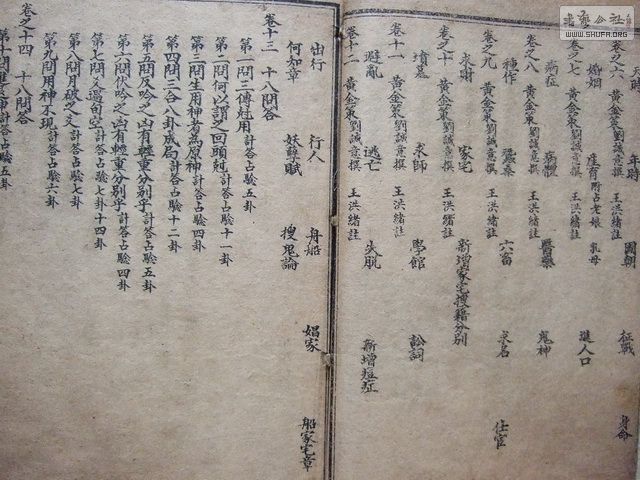 WWW.SHUFA.ORG
天時 年時 國朝 征戰 身命
卷之六 黃金策劉誠意撰 王洪緒註
婚姻 產育附占老娘乳母 進人口
卷之七 黃金策劉誠意撰 王洪緒註
病症 病體 醫藥 鬼神
卷之八 黃金策劉誠意撰 王洪緒註
種作 蠶桑 六畜 求名 仕宦
卷之九 黃金策劉誠意撰 王洪緒註
求財 家宅 新增家宅搜籍分別
卷之十 黃金策劉誠意撰 王洪緒註
墳墓 求師 學館 訟詞
卷十一 黃金策劉誠意撰 王洪緒註
避亂 逃亡 失脫 新增痘症
卷十二 黃金策劉誠意撰 王洪緒註
出行 行人 舟船 娼家 船家宅章
何知章 妖孽賦 搜鬼論
卷十三 十八問答
第一問三傳剋用計答占驗
第二問何以謂之回頭剋計答占驗十一卦
第三問生用神者為原神計答占驗
第四問三合八卦成局計答占驗十二卦
第五問反吟之凶有輕重分別乎計答占驗五卦
第六問伏吟之凶有輕重分別乎計答占驗四卦
第七問爻遇旬空計答占驗十四卦
第八問月破之爻計答占驗七卦
第九問用神不現計答占驗六卦
卷之十四 十八問答
計答占驗五卦